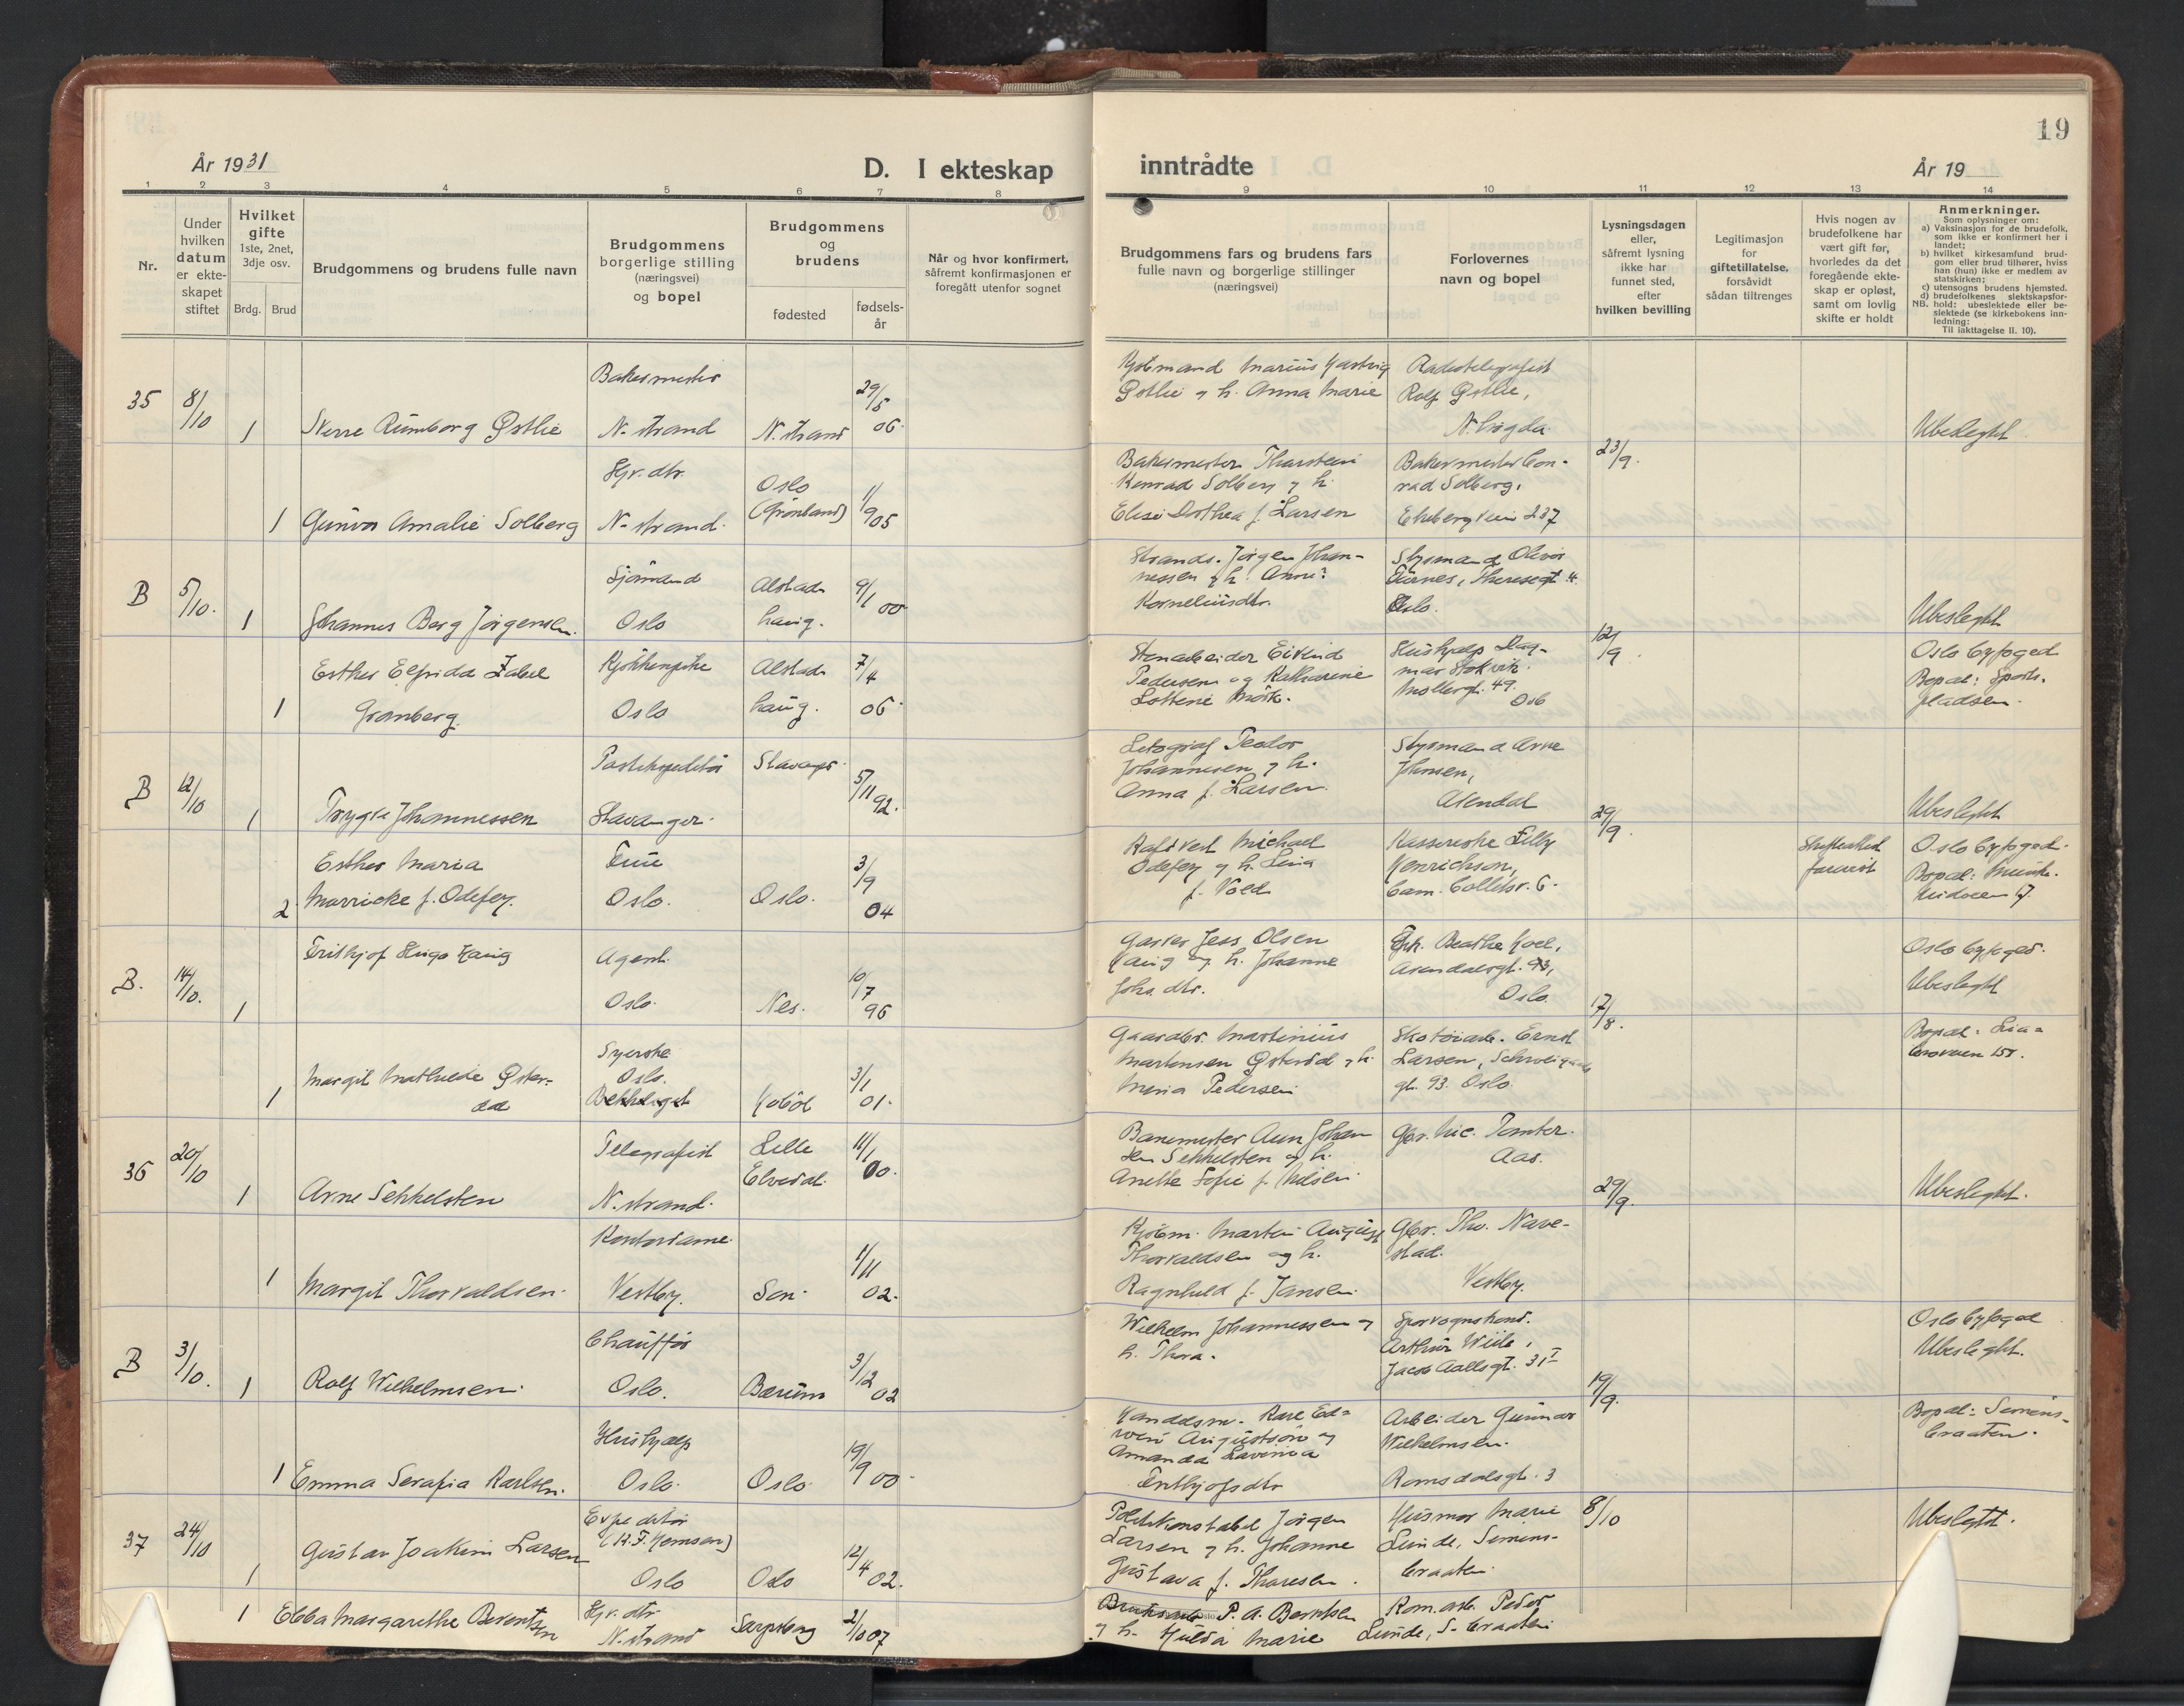 19
År 1931
D. I ekteskap
inntrådte
År 19
1 2 3 4 5 6 7 8 9 10 11 12 13 14
Nr.
Under hvilken datum er ekteskapet stiftet
Hvilket gifte
1ste, 2net, 3dje osv.
Brdg. Brud
Brudgommens og brudens fulle navn
Brudgommens borgerlige stilling (næringsvei) og bopel
Brudgommens og brudens
fødested
fødsels-år
Når og hvor konfirmert, såfremt konfirmasjonen er foregått utenfor sognet
Brudgommens fars og brudens fars fulle navn og borgerlige stillinger (næringsvei)
Forlovernes navn og bopel
Lysningsdagen eller, såfremt lysning ikke har funnet sted, efter hvilken bevilling
Legitimasjon for giftetillatelse, forsåvidt sådan tiltrenges
Hvis nogen av brudefolkene har vært gift før, hvorledes da det foregående ekteskap er opløst, samt om lovlig skifte er holdt
Anmerkninger.
Som oplysninger om:
a) Vaksinasjon for de brudefolk, som ikke er konfirmert her i landet;
b) hvilket kirkesamfund brudgom eller brud tilhører, hviss han (hun) ikke er medlem av statskirken;
c) utensogns brudens hjemsted.
d) brudefolkenes slektskapsforhold: ubeslektede eller beslektede (se kirkebokens innledning:
NB.
Til iakttagelse II. 10).
35 8/10 1
Østlie
Bakermester
N. strand
N. strand
29/5 06
Kjøbmand Marius Hartvig
Østlie og h. Anna Marie
Radiotelegrafist
Rolf Østlie,
Ubeslegtet
1 Gunvor Amalie Solberg
Hjv. dtr.
N. strand.
Oslo
(Grønland)
1/9 05
Bakermester Tharstein
Konrad Solberg og h.
Elise Dorthea f. Larsen
Bakermester Con-
rad Solberg,
Ekebergveien 237
23/9.
B 5/10. 1
Johannes Berg Jørgensen.
Sjømand
Oslo
Alstad-
haug.
9/1 00
Strands. Jørgen Johan-
nessen og h. Anne
Korneliusdtr.
Styrmand Oliver
Furnes, Theresegt. 4
Oslo.
Ubeslegtet
1 Esther Elfrida Zabel
Granberg
Kjøkkenpike
Oslo
Alstad-
haug.
7/4 06
Stenarbeider Eivind
Pedersen og Katharine
Lottene Mørk.
Hushjælp Dag-
mar Stokvik.
Møllergt. 49.
Oslo
12/9.
Oslo byfoged
Bopæl: Sports-
pladsen.
B 12/10 1
Trygve Johannessen
Postekspeditør
Stavanger.
Stavanger
5/11 92.
Litograf Teodor
Johannesen og h.
Anna f. Larsen
Styrmand Arne
Johnsen,
Arendal
Ubeslegtet
2 Esther Maria
Marricke f. Odefey.
Frue
Oslo.
Oslo.
3/9 04
Michael
Odefey og h. Lina
f. Vold
Kassererske Lilly
Henrichson,
Cam. Colletsv. 6.
29/9.
Oslo byfoged.
B. 14/10. 1
Frithjof Hugo Haug
Agent.
Oslo.
Nes.
10/7 96
Garver Jess Olsen
Haug og h. Johanne
Johs. dtr.
Frk. Beathe Hoel,
Arendalsgt. 43,
Oslo.
Oslo byfoged.
Ubeslegtet
1 Margit Mathilde Øster-
ød
Syerske
Oslo.
Bekkelaget
Hobøl
3/1 01.
Gaardbr. Martinius
Martensen Østerød og h.
Mina Pedersen
Skotøiarb. Ernst
Larsen, Schweigaards
gt. 93. Oslo
17/8.
Bopæl: Lia-
broveien 155.
36 20/10 1
Arne Sekkelsten
Telegrafist
N. strand.
Lille
Elvedal.
11/1 00.
Banemester Aun Johan
sen Sekkelsten og h.
Anette Sofie f. Nilsen
Gbr. Nic. Tomter.
Aas.
Ubeslegtet.
1 Margit Thorvaldsen.
Kontordame.
Vestby.
Son.
1/11 02.
Kjøbm. Martin August
Thorvaldsen og h.
Ragnhild f. Jansen.
Gbr. Thv. Nave-
stad.
Vestby.
29/9.
B 3/10. 1
Rolf Wilhelmsen.
Chauffør
Oslo.
Bærum
3/12 02
Wilhelm Johannessen og
h. Thora.
Sporvognskond.
Arthur Wiile,
Jacob Aallsgt. 31 I
Oslo byfoged
Ubeslegtet.
1 Emma Serafia Karlsen.
Hushjælp
Oslo.
Oslo.
19/9 00.
Handelsm. Karl Ed-
win Augustson og
Amanda Lavinia
Frithjofsdtr
Arbeider Gunnar
Wilhelmsen.
Romsdalsgt. 3
19/9.
Bopæl: Semens-
braaten.
37 24/10 1
Gustav Joakim Larsen
Expeditør
(K. F. Hemsen)
Oslo
Oslo
12/4 02.
Politikonstabel Jørgen
Larsen og h. Johanne
Gustava f. Thoresen.
Husmor Marie
Lunde, Semens-
braaten.
8/10
Ubeslegtet.
1 Ebba Margarethe Berentsen
Hjv. dtr
N. strand
Sarpsborg
2/10 07
P. A. Berntsen
og h. Hulda Marie
Rom. arb. Peder
Lunde, S. braaten